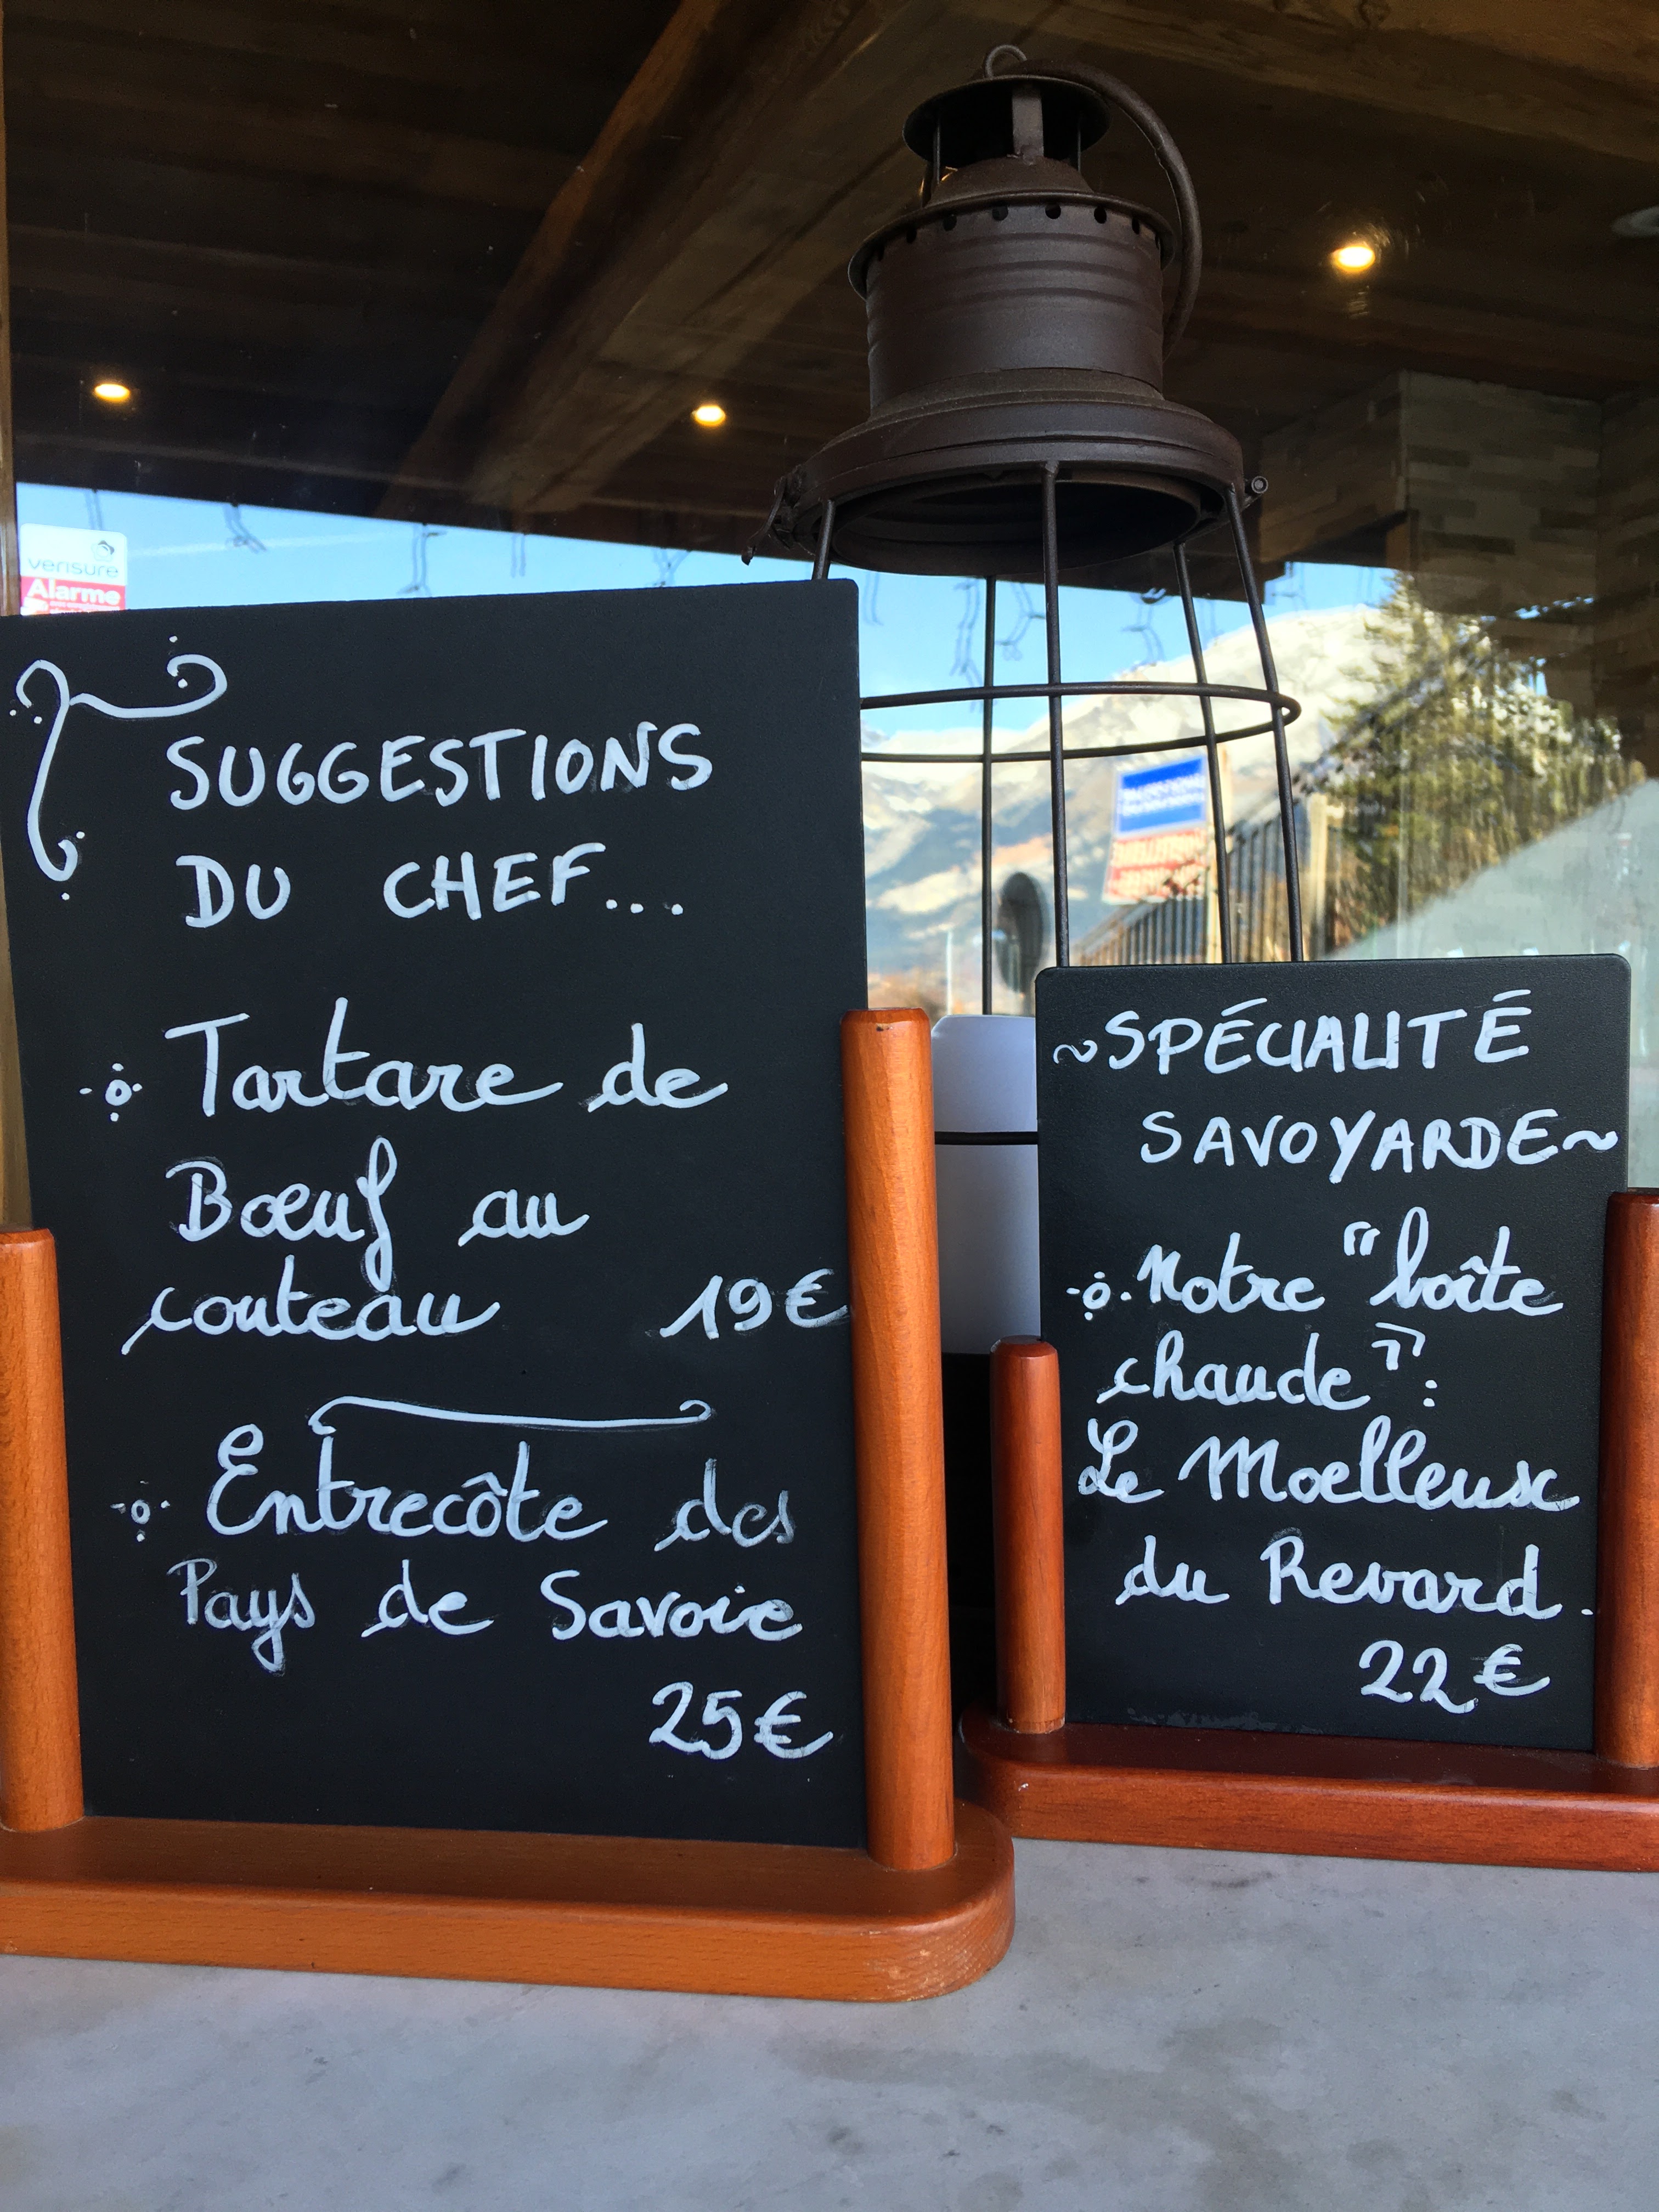 verisure
Alarme
SUGGESTIONS
DU CHEF...
Tartare de
Bœuf au
couteau 19€
Entrecôte des
Pays de Savoie
25€
~SPÉCIALITÉ
SAVOYARDE~
Notre "boîte
chaude":
Le Moelleux
du Revard.
22€